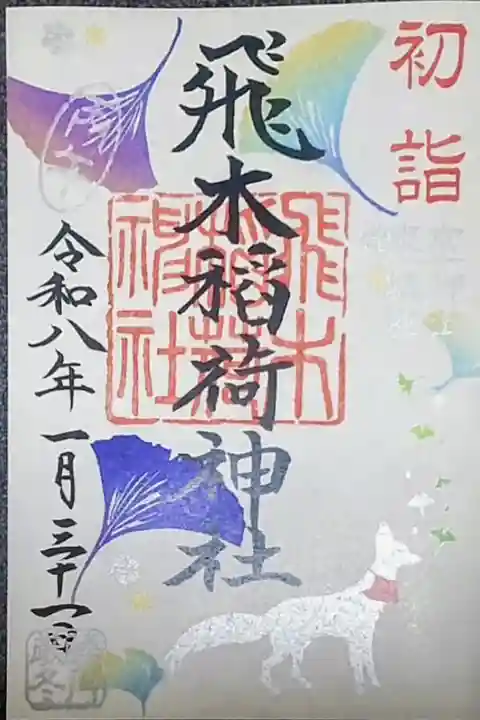 初詣
飛木稲荷神社
飛木稲荷神社
令和八年一月三十一日